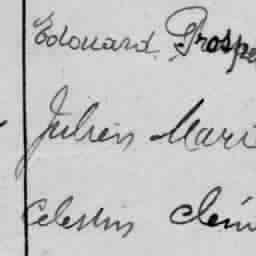 Edouard Prospe
Julien Mari
Celestin Clém